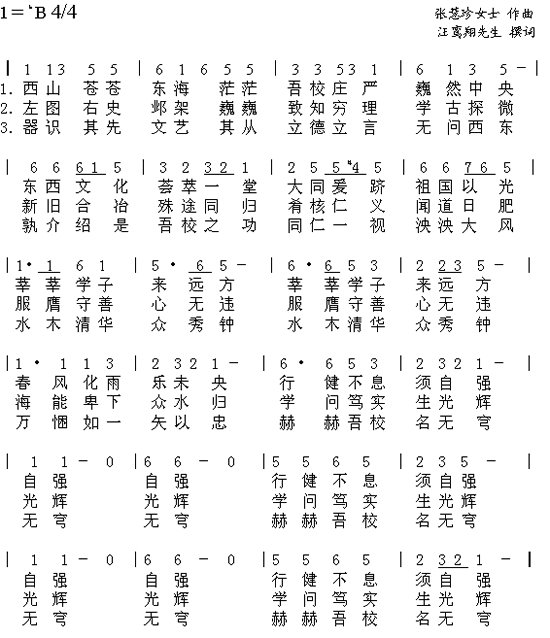 1=♭B 4/4
张慧珍女士 作曲
汪鸾翔先生 撰词
| 1 13 5 5 | 6 1 6 5 5 | 3 3 53 1 | 6 1 3 5 – |
1. 西山 苍苍 东海 茫茫 吾校庄严 巍然中央
2. 左图 右史 邺架 巍巍 致知穷理 学古探微
3. 器识 其先 文艺 其从 立德立言 无问西东
| 6 6 6 1 5 | 3 2 3 2 1 | 2 5 5 #4 5 | 6 6 7 6 5 |
东西文化 荟萃一堂 大同爰跻 祖国以光
新旧合冶 殊途同归 肴核仁义 闻道日肥
孰介绍是 吾校之功 同仁一视 泱泱大风
| 1· 1 6 1 | 5· 6 5 – | 6· 6 5 3 | 2 2 3 5 – |
莘莘学子 来远方 莘莘学子 来远方
服膺守善 心无违 服膺守善 心无违
水木清华 众秀钟 水木清华 众秀钟
| 1· 1 1 3 | 2 3 2 1 – | 6· 6 5 3 | 2 3 2 1 – |
春风化雨 乐未央 行健不息 须自强
海能卑下 众水归 学问笃实 生光辉
万悃如一 矢以忠 赫赫吾校 名无穹
| 1 1 – 0 | 6 6 – 0 | 5 5 6 5 | 2 3 5 – |
自强 自强 行健不息 须自强
光辉 光辉 学问笃实 生光辉
无穹 无穹 赫赫吾校 名无穹
| 1 1 – 0 | 6 6 – 0 | 5 5 6 5 | 2 3 2 1 – |
自强 自强 行健不息 须自强
光辉 光辉 学问笃实 生光辉
无穹 无穹 赫赫吾校 名无穹